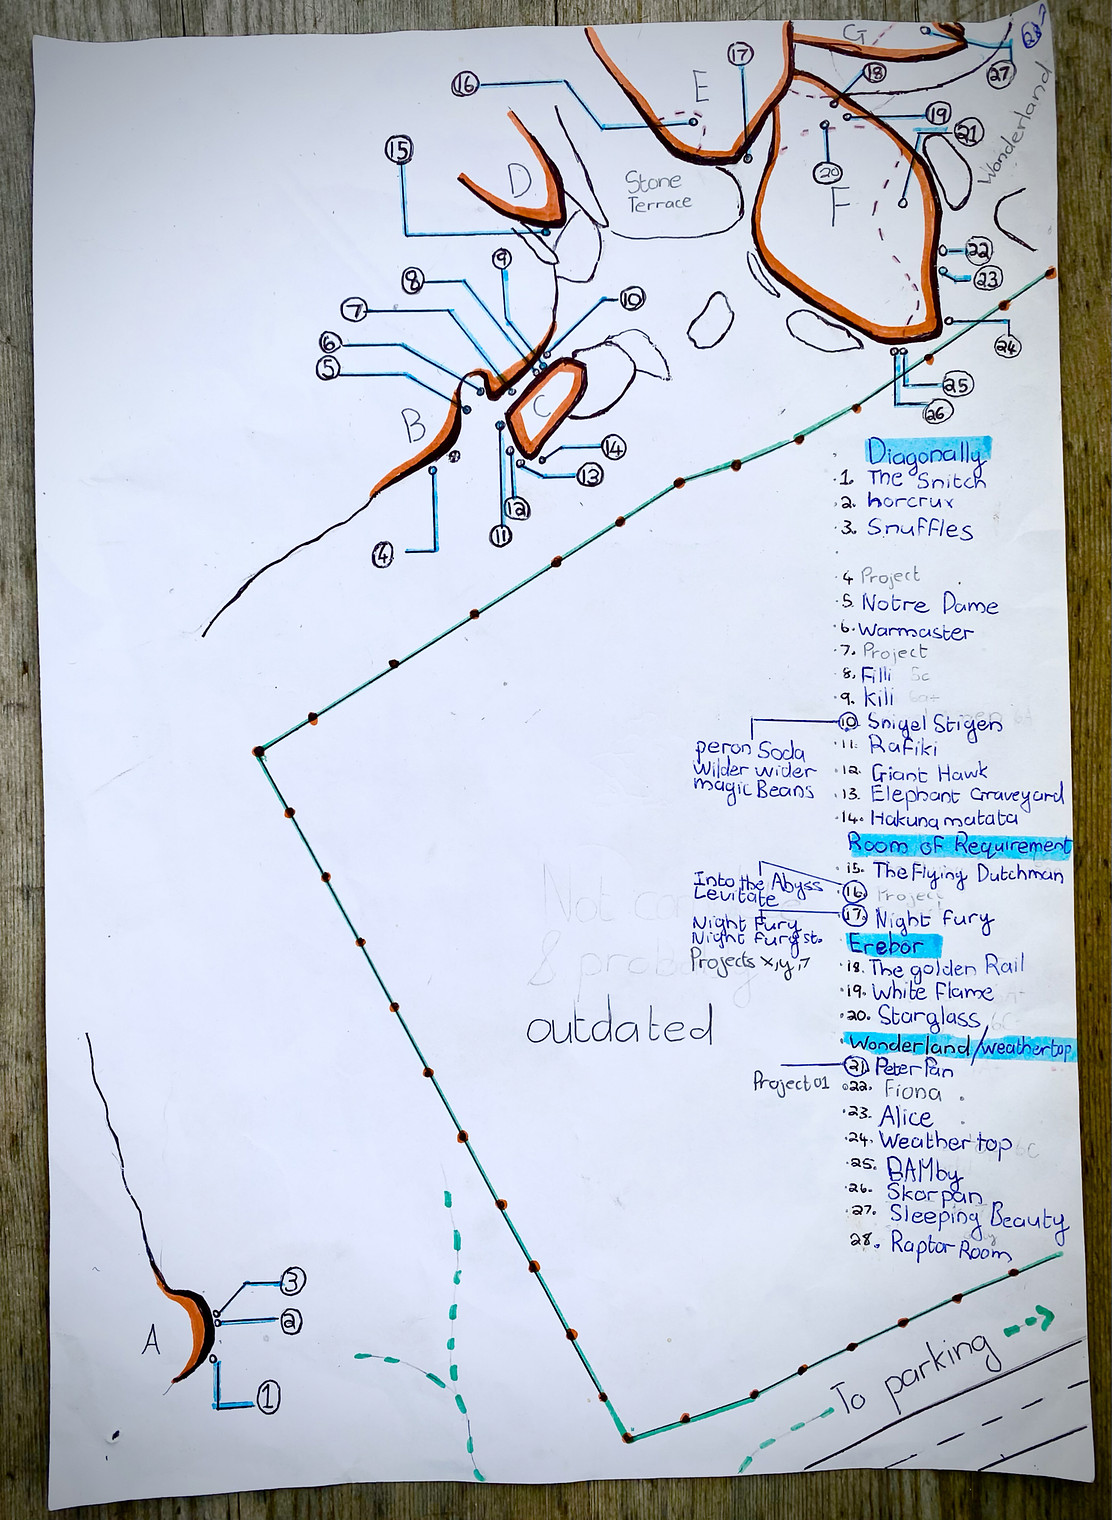 G
28
17
E
18
27
16
19
21
Wonderland
15
20
D
Stone
Terrace
F
9
22
8
23
10
7
6
24
5
25
C
B
26
14
13
12
11
4
Diagonally
1. The Snitch
2. horcrux
3. Snuffles
4 Project
5. Notre Dame
6. Warmaster
7. Project
8. Filli 5c
9. Kili 6a+
10 Snigel Stigen
peron Soda
Wilder wider
magic Beans
11. Rafiki
12. Giant Hawk
13. Elephant Graveyard
14. Hakuna matata
Room of Requirement
15. The Flying Dutchman
16. Project
Into the Abyss
Levitate
17. Night fury
Night Fury
Night fury st.
Projects x,y,z
Erebor
18. The golden Rail
19. White Flame
20. Starglass 6C
Not
& probably
outdated
Wonderland/weathertop
21. Peter Pan
Project 01
22. Fiona
23. Alice
24. Weather top 6C
25. BAMby
26. Skorpan
27. Sleeping Beauty
28. Raptor Room
3
2
A
1
To parking